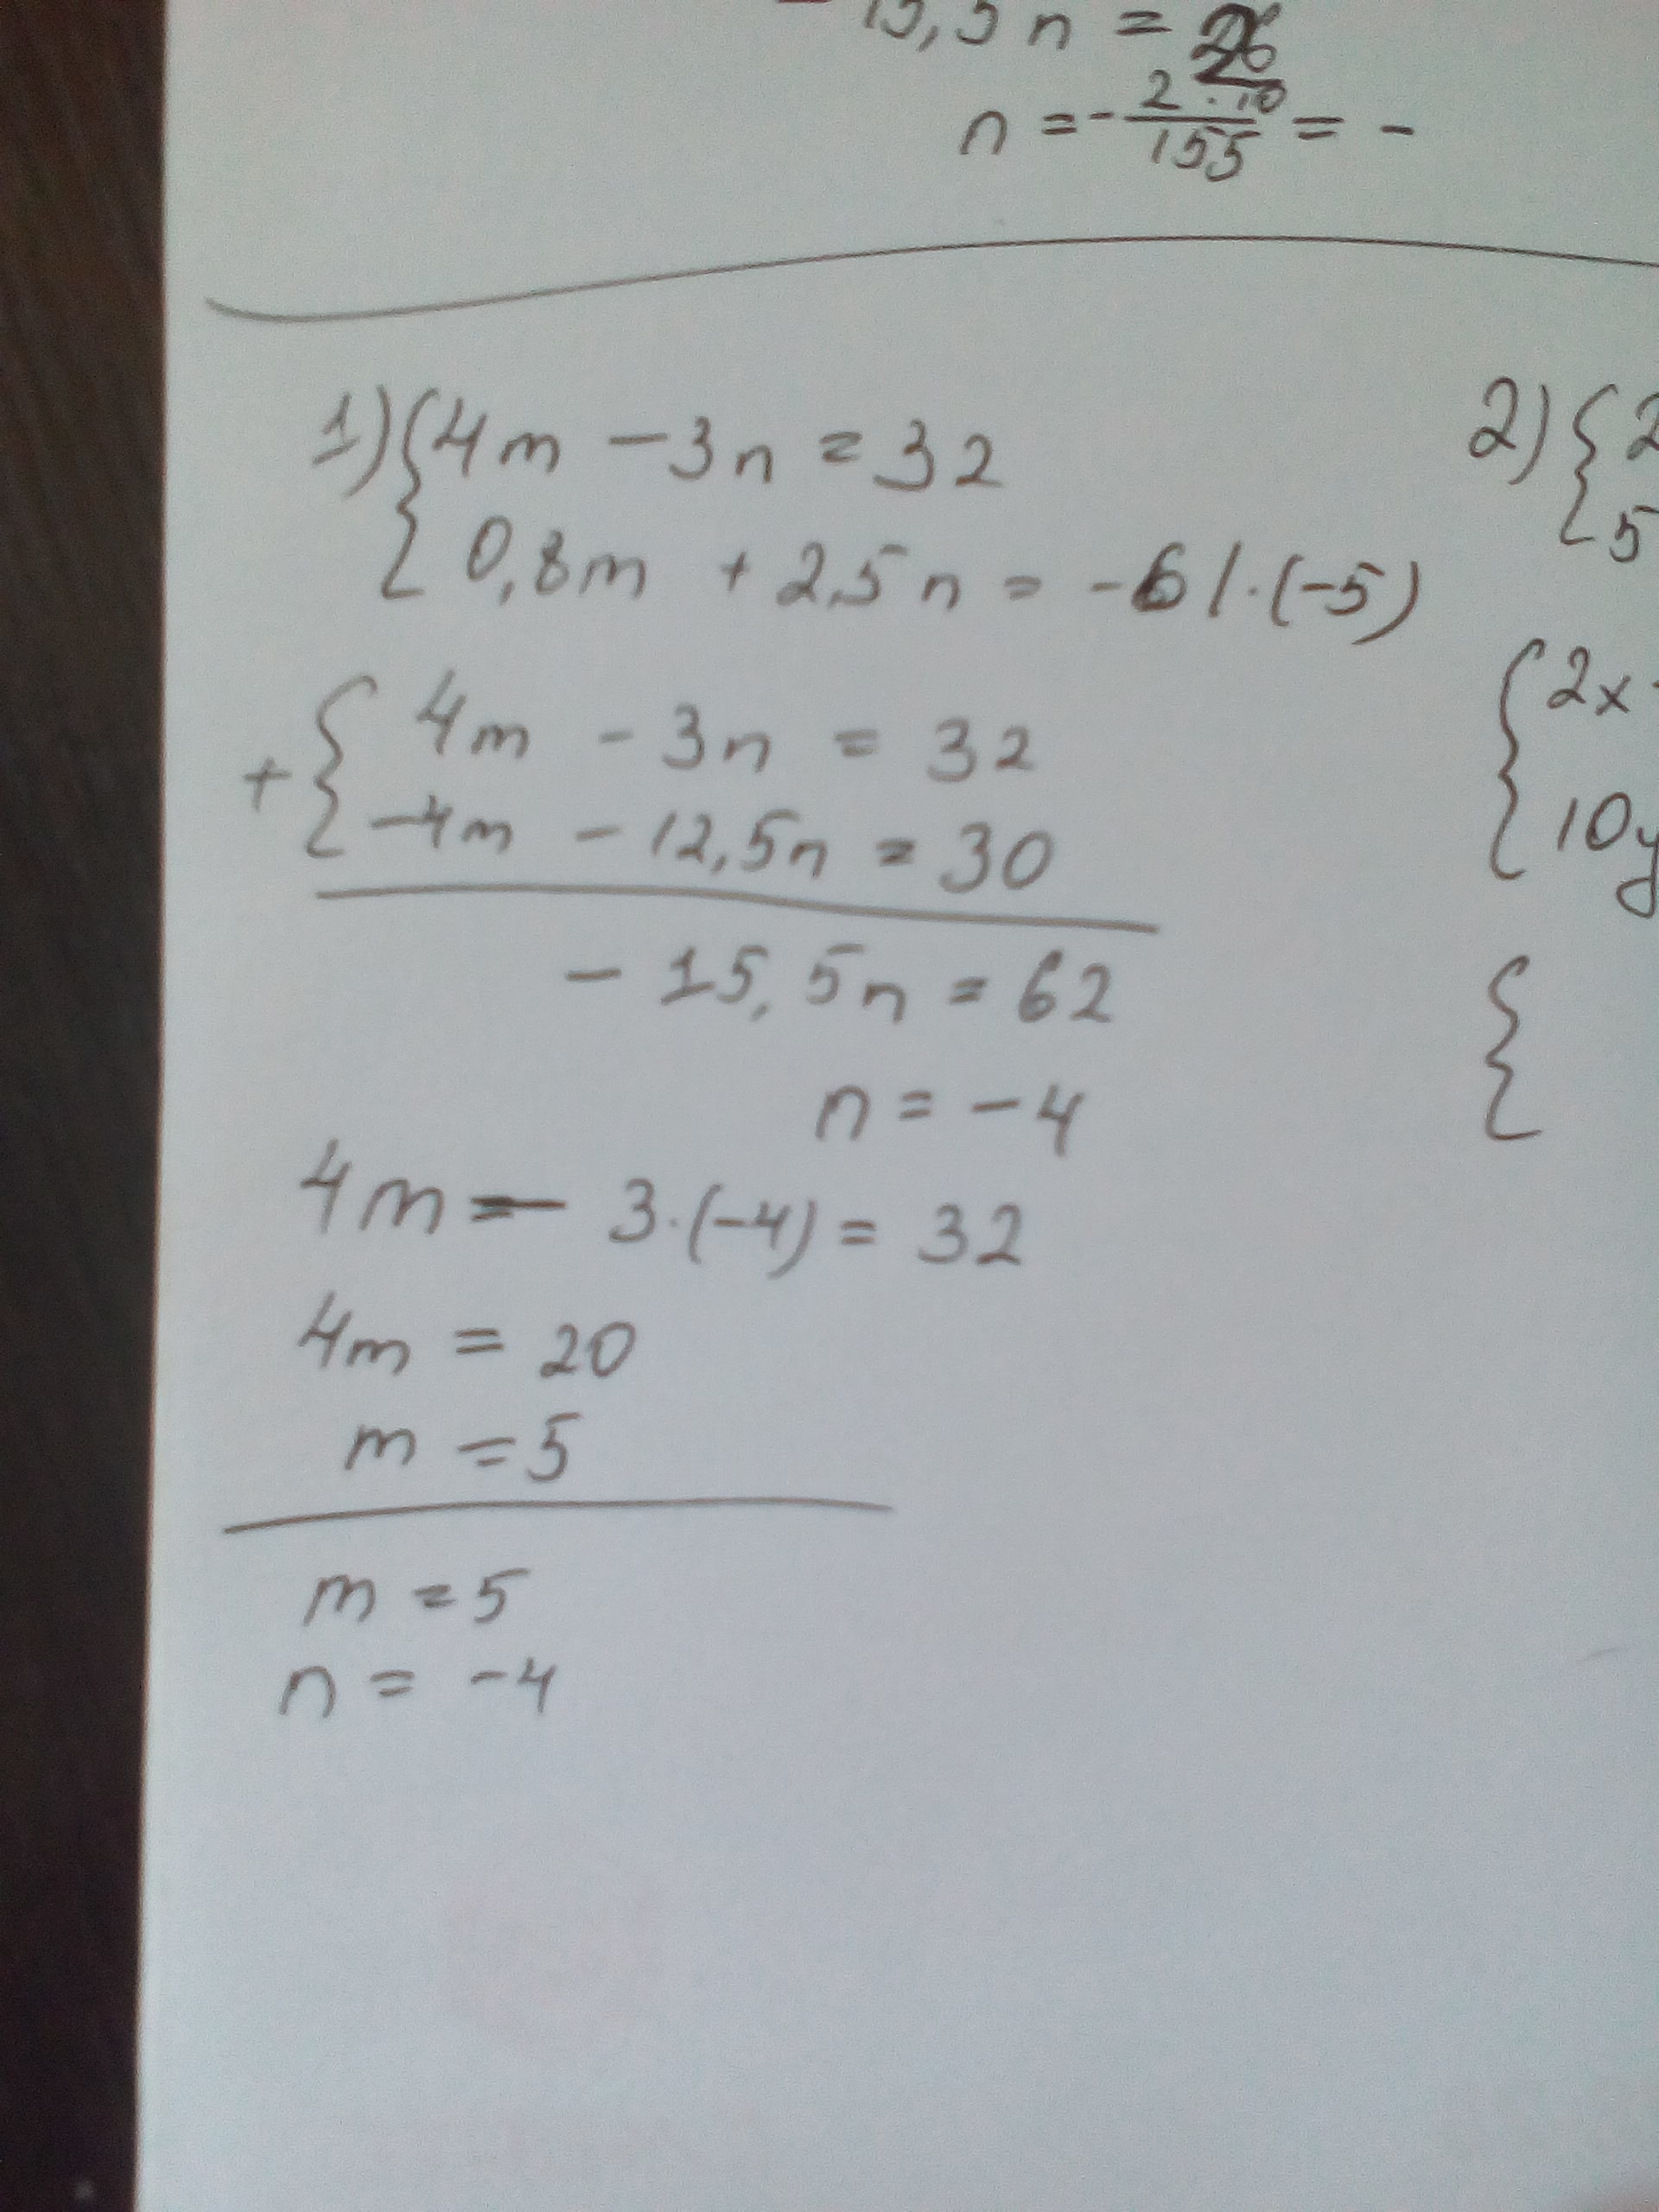 15,5n = 26
n = - 2·10/155 = -
1) { 4m - 3n = 32
0,8m + 2,5n = -6 |·(-5)
+ { 4m - 3n = 32
-4m - 12,5n = 30
- 15,5n = 62
n = -4
4m - 3·(-4) = 32
4m = 20
m = 5
m = 5
n = -4
2) { 2
5
{ 2x
10y
{